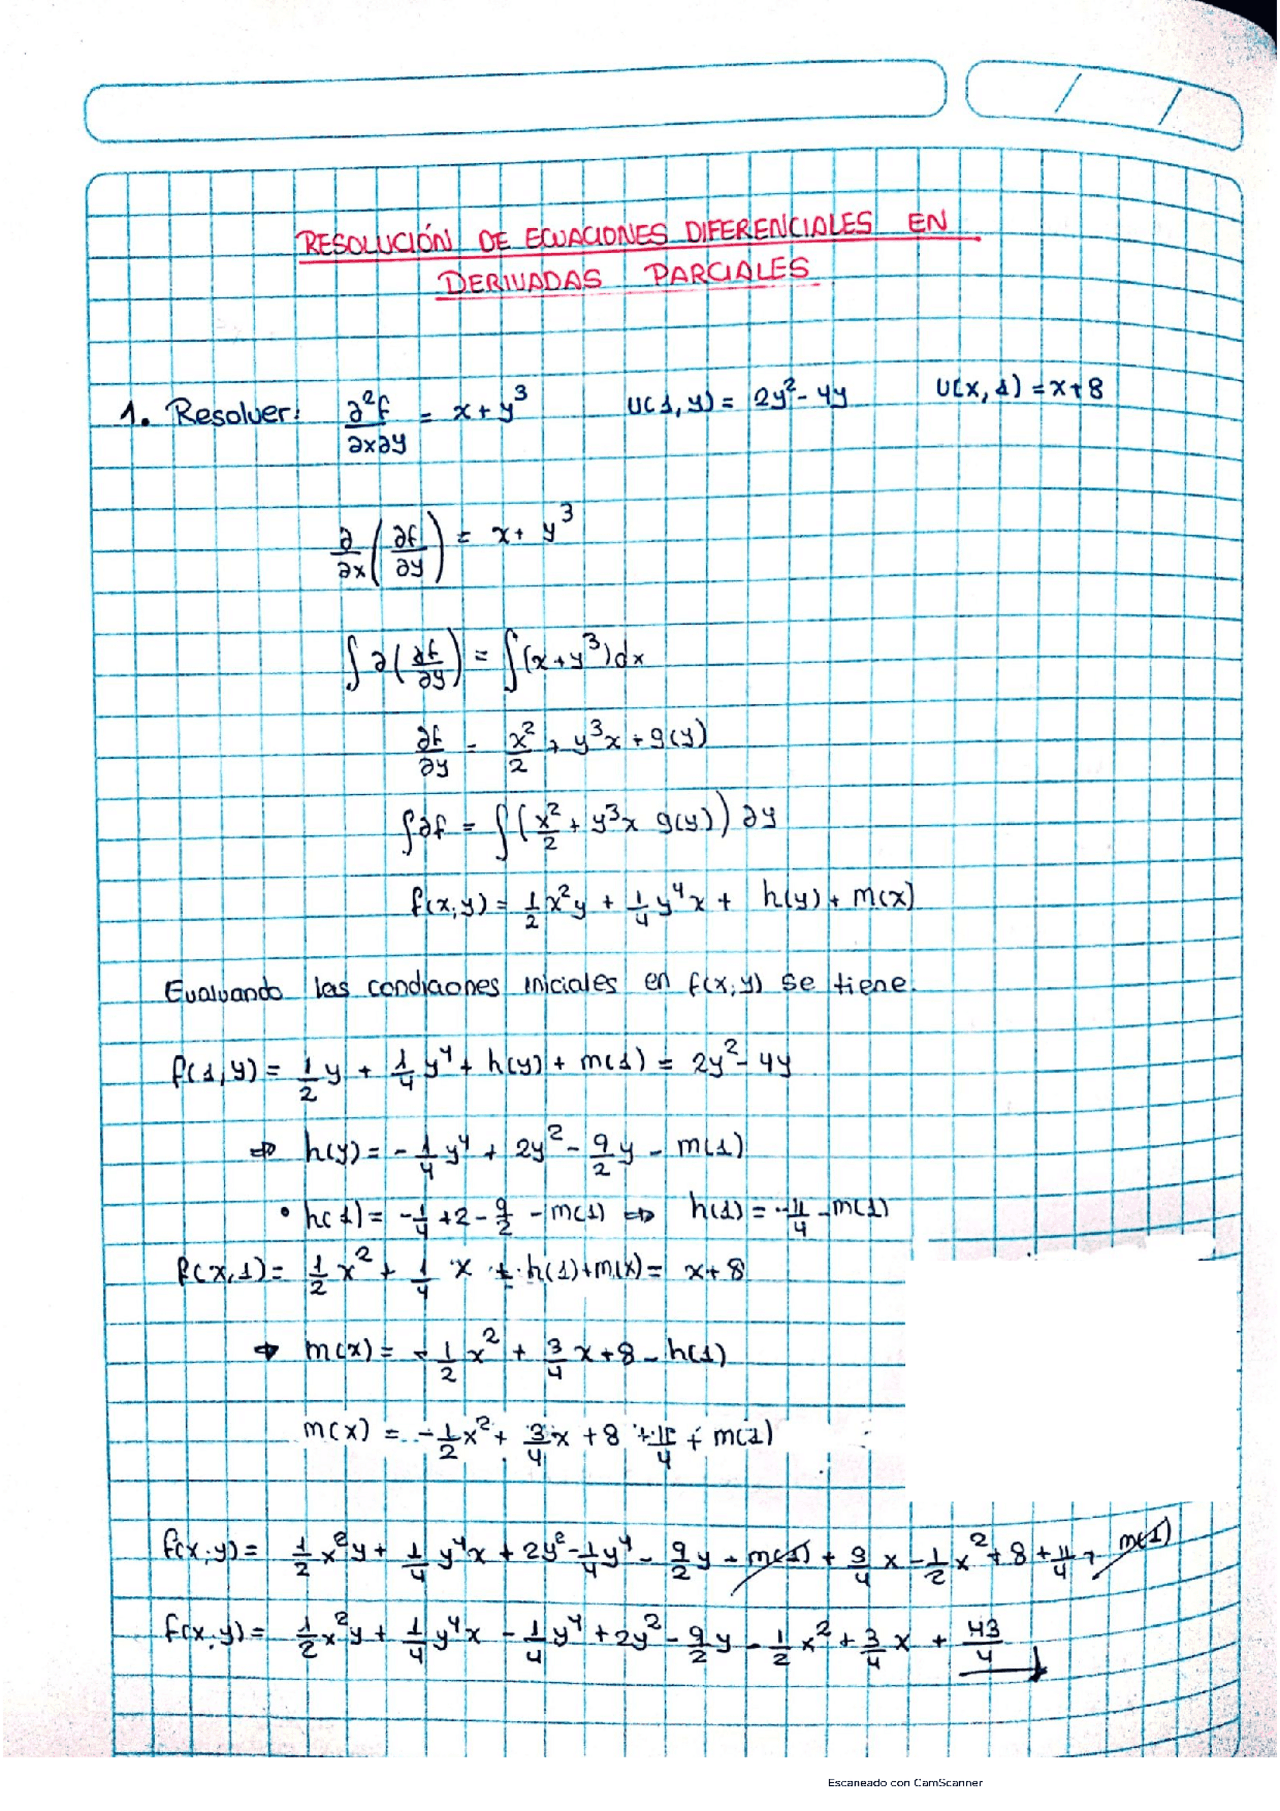 RESOLUCIÓN DE ECUACIONES DIFERENCIALES EN
DERIVADAS PARCIALES
1. Resolver: ∂²f/∂x∂y = x + y³ U(1,y) = 2y² - 4y U(x,1) = x+8
∂/∂x (∂f/∂y) = x + y³
∫ ∂(∂f/∂y) = ∫(x + y³)dx
∂f/∂y = x²/2 + y³x + g(y)
∫∂f = ∫(x²/2 + y³x g(y)) ∂y
f(x,y) = 1/2 x²y + 1/4 y⁴x + h(y) + m(x)
Evaluando las condiciones iniciales en f(x,y) se tiene.
f(1,y) = 1/2 y + 1/4 y⁴ + h(y) + m(1) = 2y² - 4y
⇒ h(y) = -1/4 y⁴ + 2y² - 9/2 y - m(1)
• h(1) = -1/4 + 2 - 9/2 - m(1) ⇒ h(1) = -11/4 - m(1)
f(x,1) = 1/2 x² + 1/4 x + h(1) + m(x) = x+8
⇒ m(x) = -1/2 x² + 3/4 x + 8 - h(1)
m(x) = -1/2 x² + 3/4 x + 8 + 11/4 + m(1)
f(x,y) = 1/2 x²y + 1/4 y⁴x + 2y² - 1/4 y⁴ - 9/2 y - m(1) + 3/4 x - 1/2 x² + 8 + 11/4 + m(1)
f(x,y) = 1/2 x²y + 1/4 y⁴x - 1/4 y⁴ + 2y² - 9/2 y - 1/2 x² + 3/4 x + 43/4
Escaneado con CamScanner